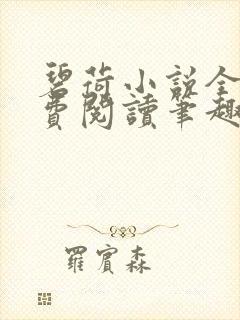 碧荷小説全
費閱讀筆趣
羅賓森